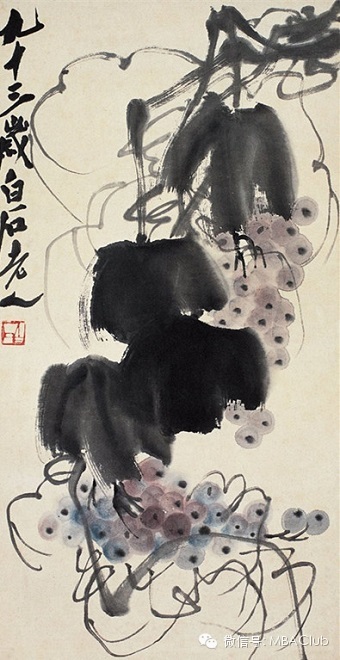 九十三歲白石老人
微信号: MBAClub